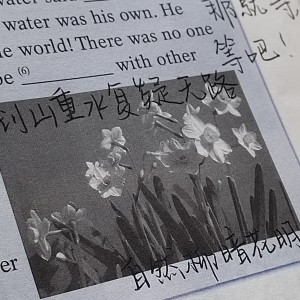 water was his own. He
那就等
he world! There was no one
等吧！
be (6) ________ with other
到山重水复疑无路
自然柳暗花明
er